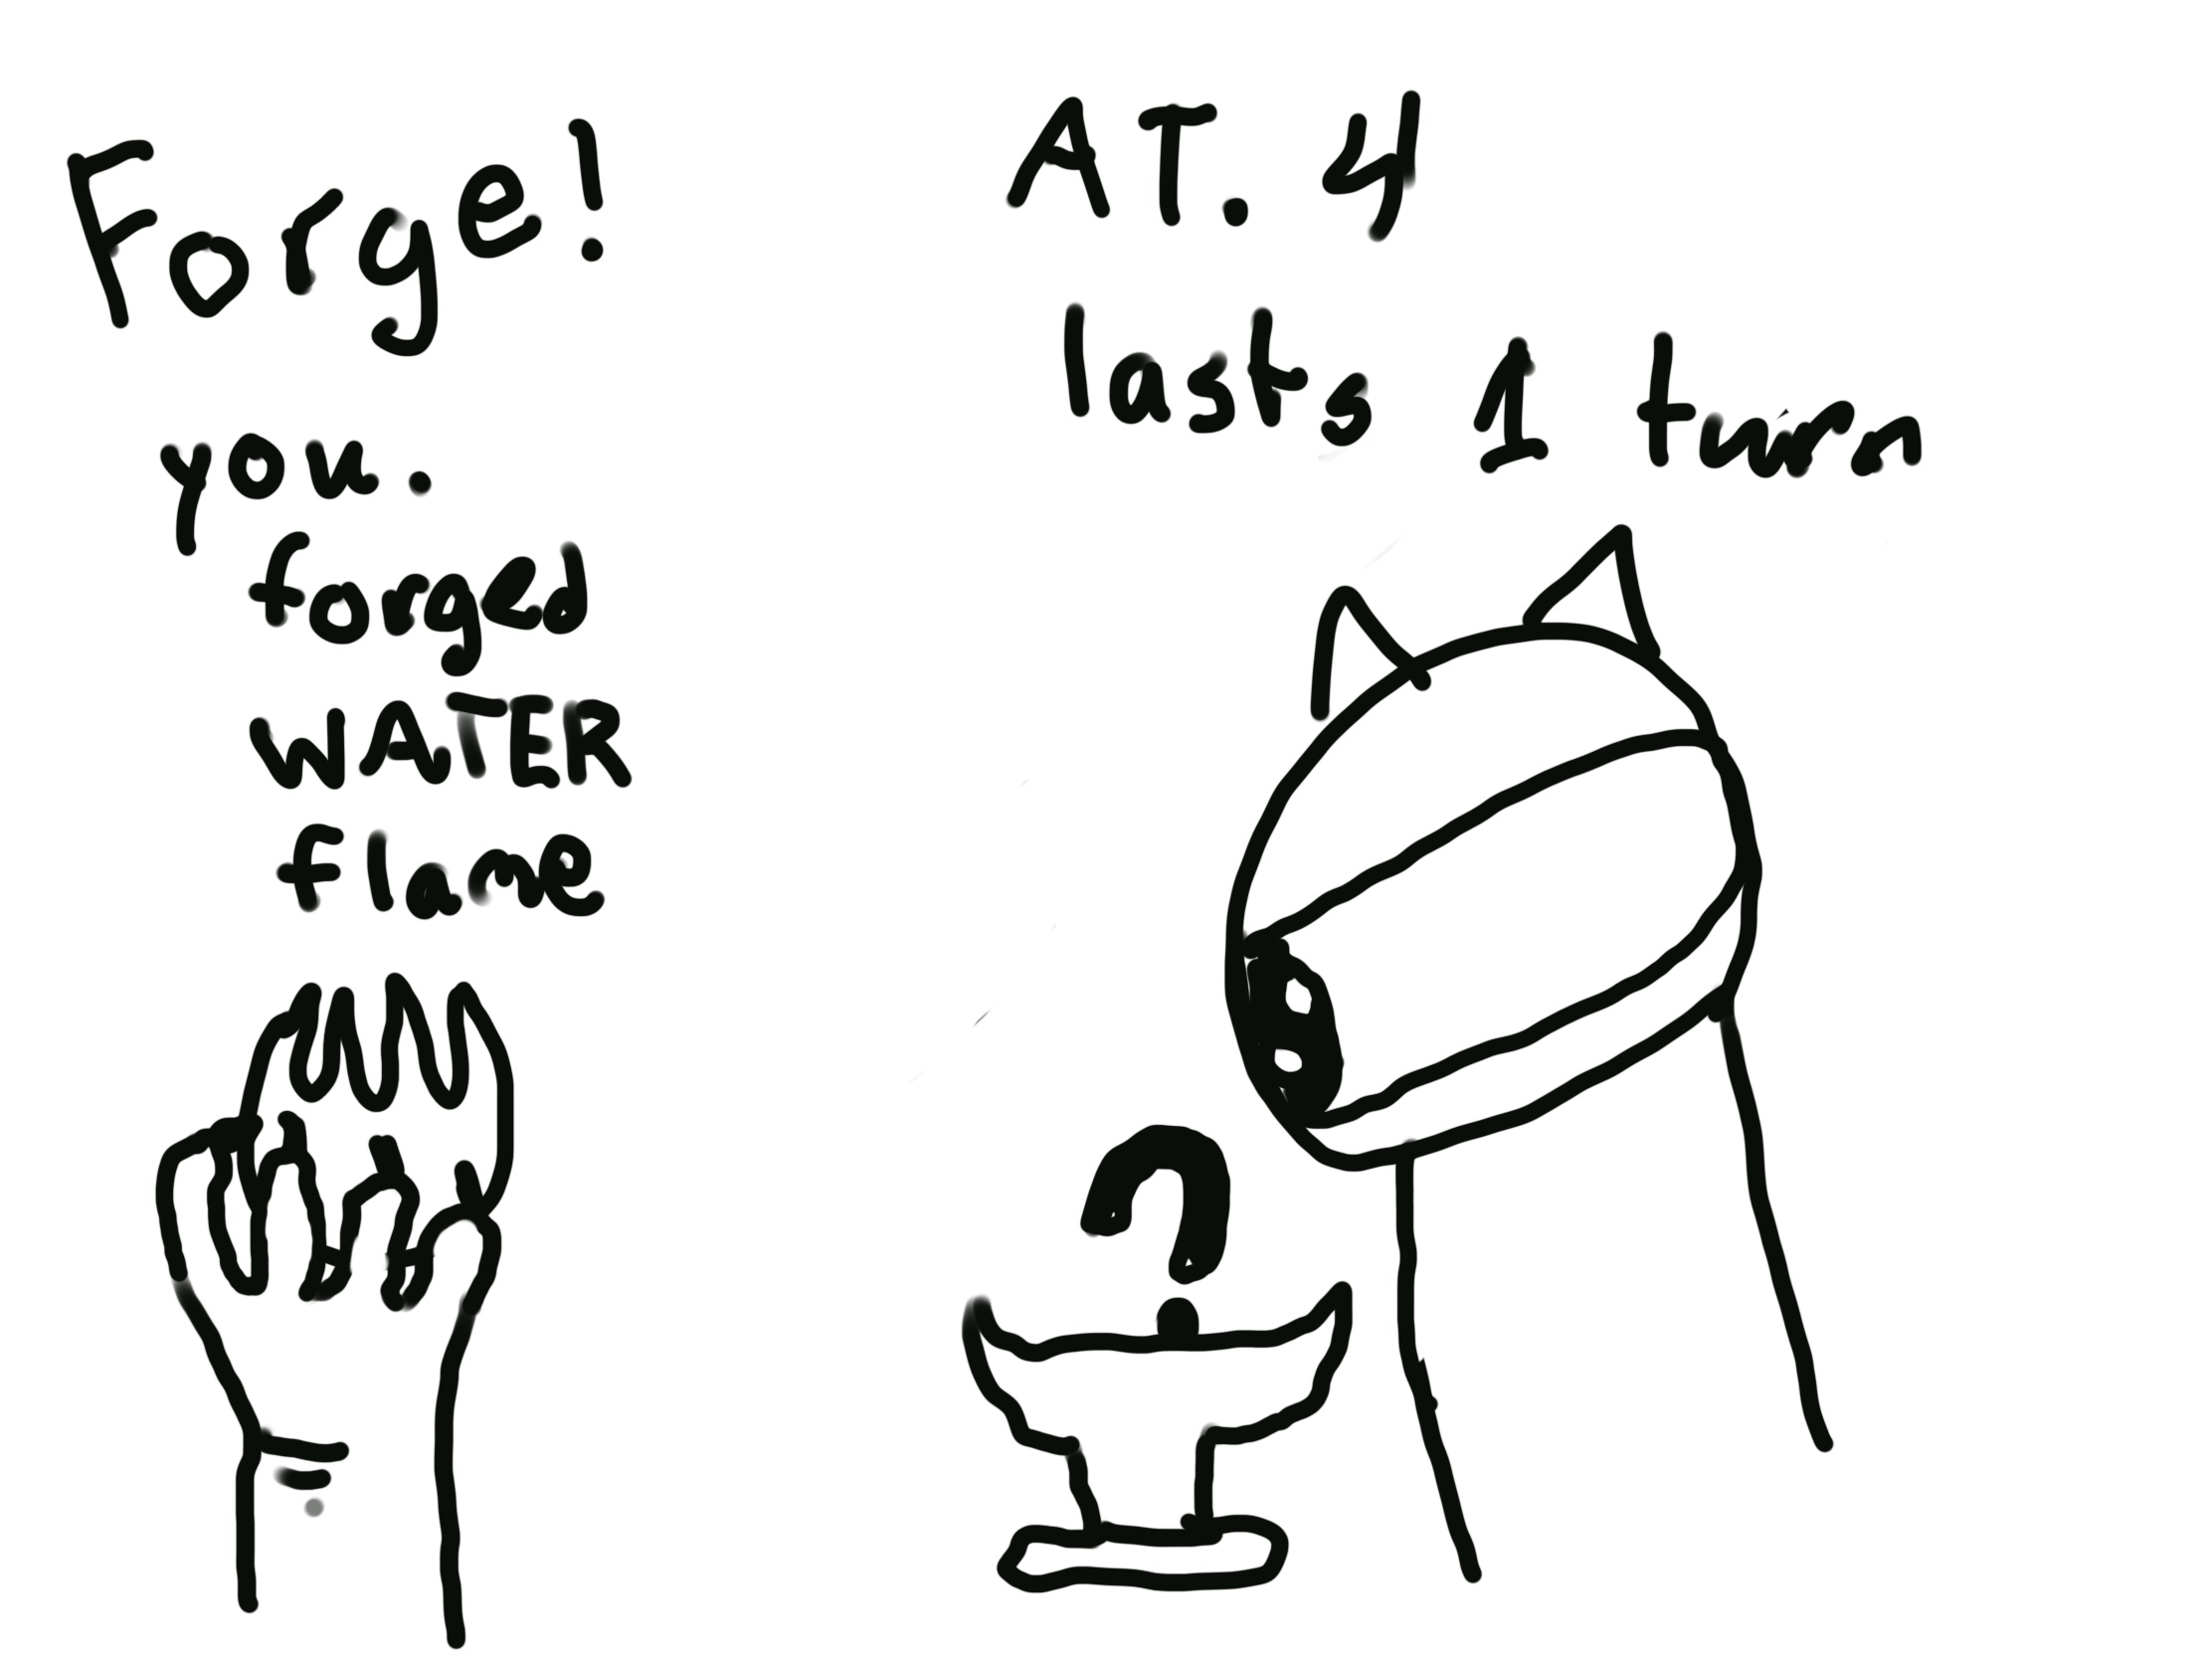 Forge!
you.
forged
WATER
flame
AT. 4
lasts 1 turn
?